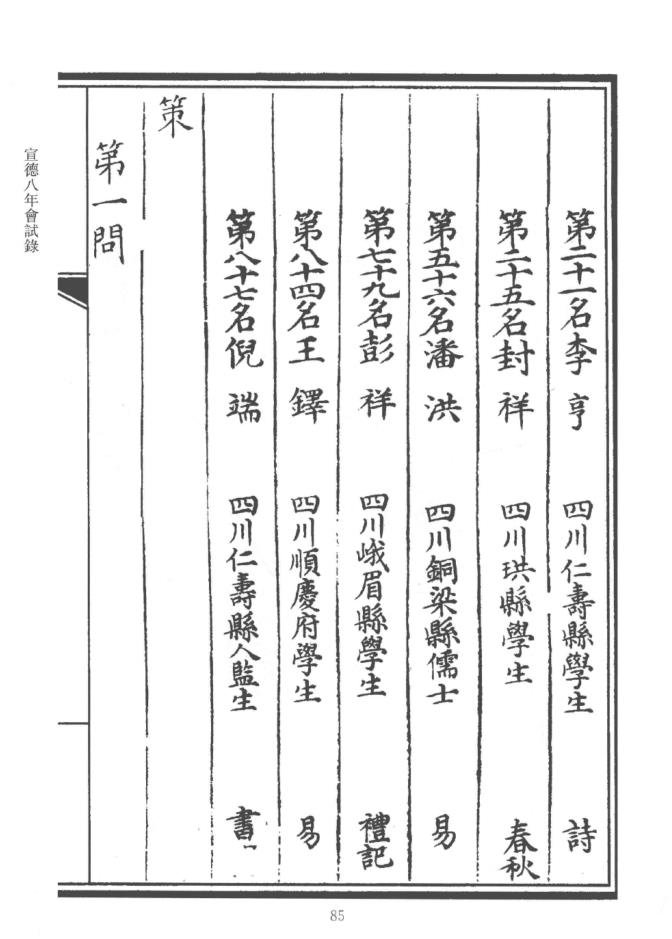 第二十一名李亨 四川仁壽縣學生 詩
第二十五名封祥 四川珙縣學生 春秋
第五十六名潘洪 四川銅梁縣儒士 易
第七十九名彭祥 四川峨眉縣學生 禮記
第八十四名王鐸 四川順慶府學生 易
第八十七名倪端 四川仁壽縣人監生 書
策
第一問
宣德八年會試錄
85